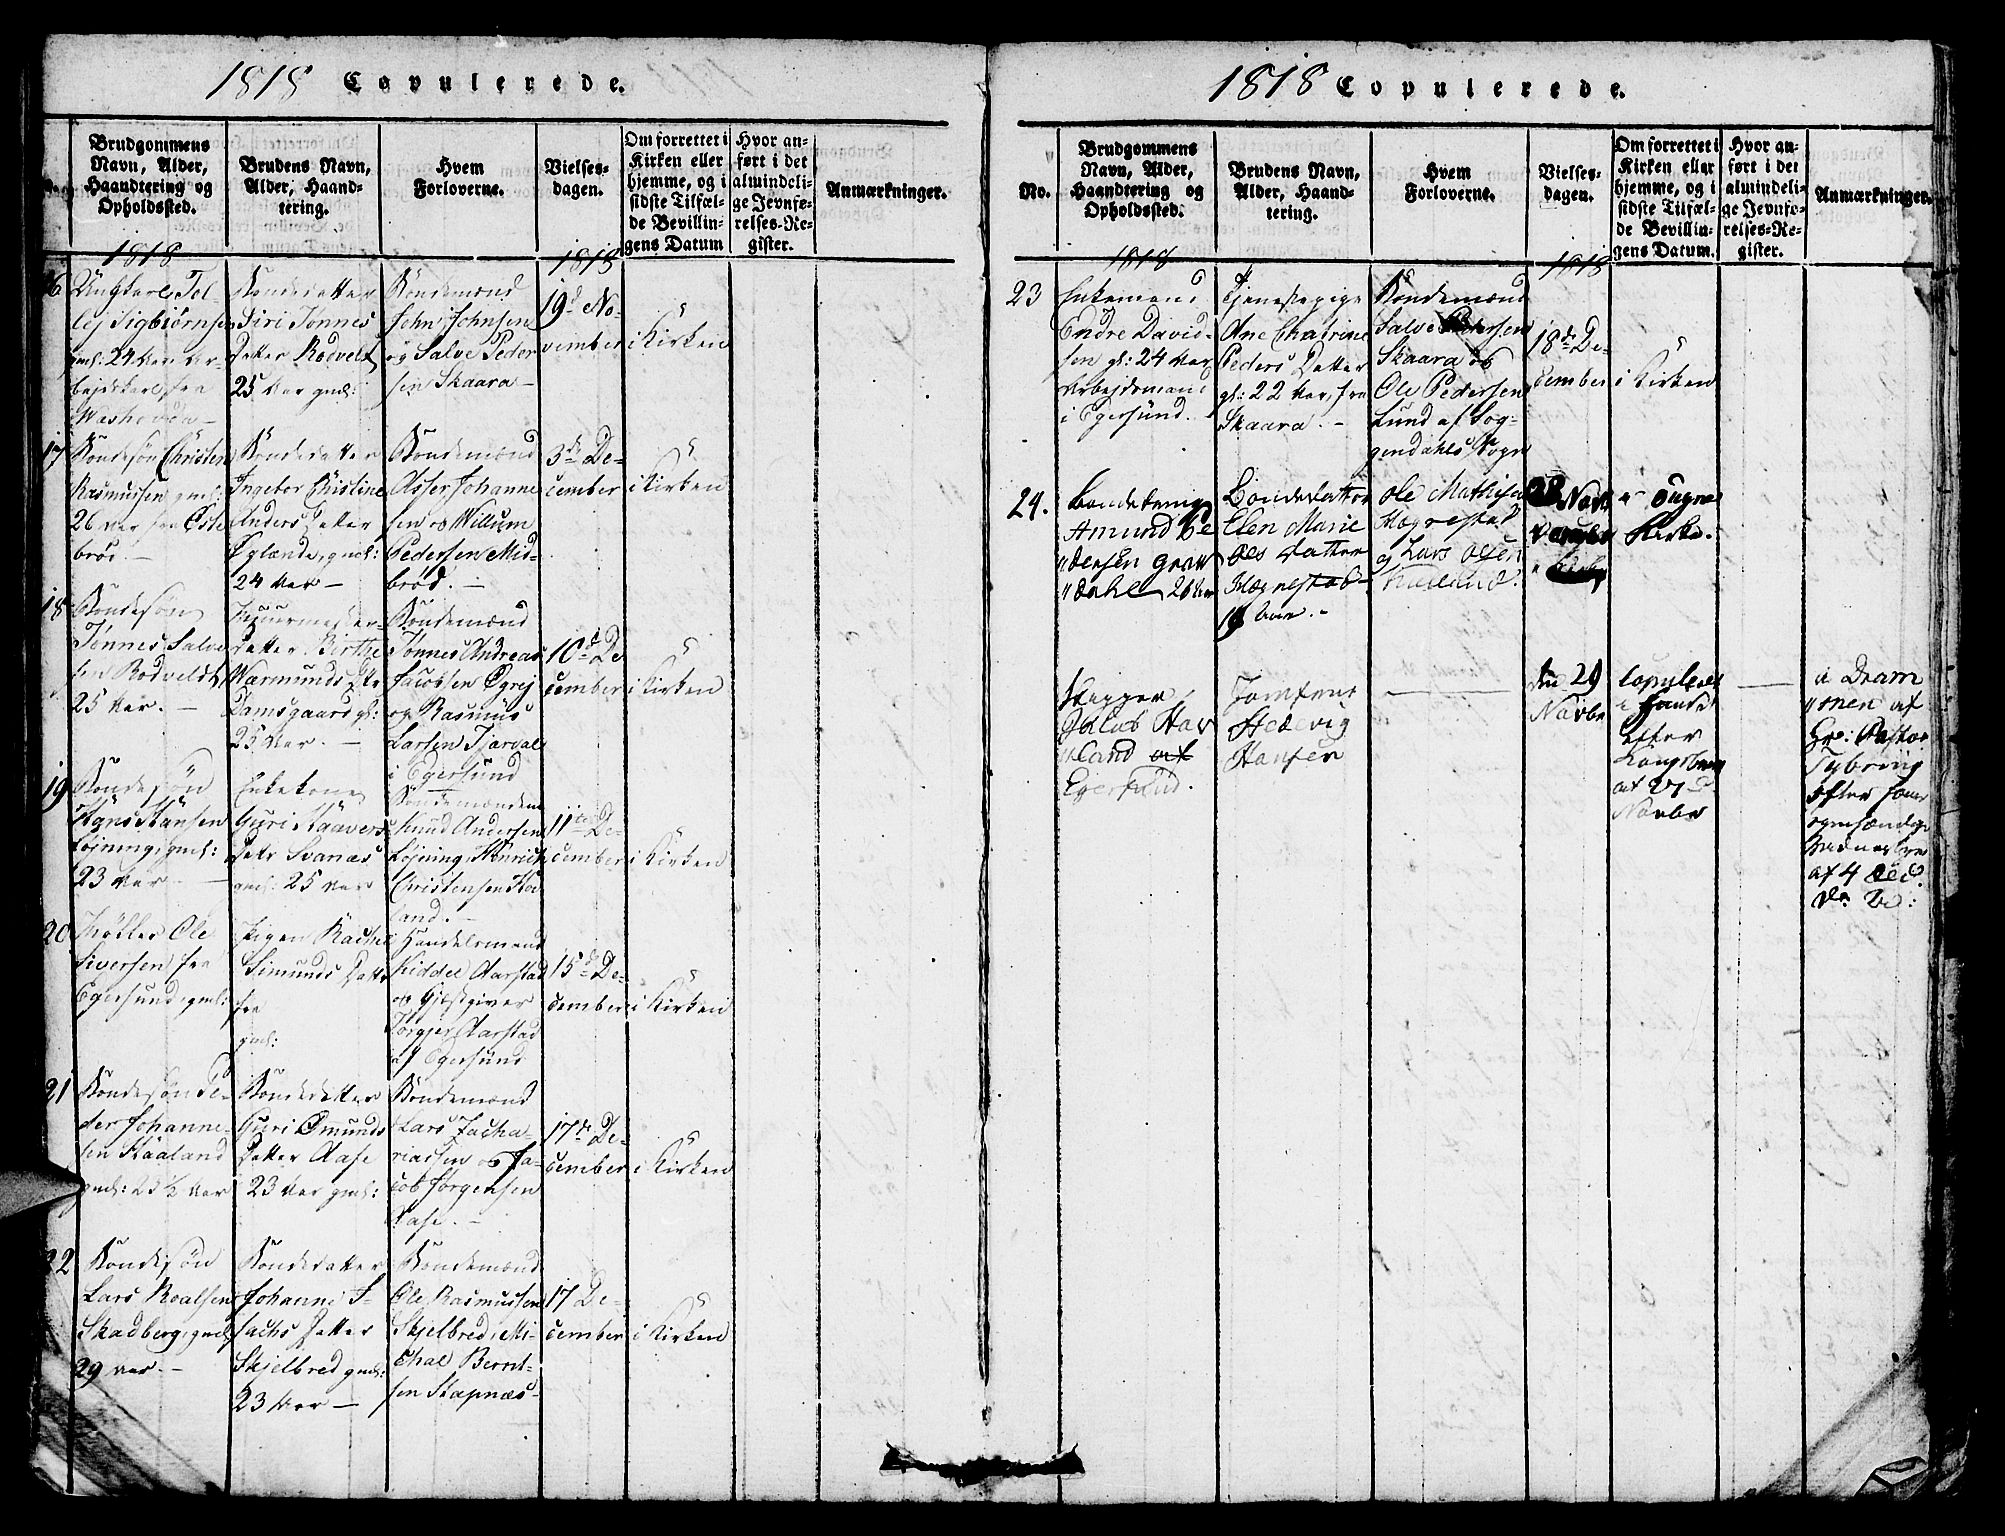 1818 Copulerede.
Brudgommens
Navn, Alder,
Haandtering og
Opholdssted.
Brudens Navn,
Alder, Haand-
tering.
Hvem
Forloverne.
Vielses-
dagen.
Om forrettet i
Kirken eller
hjemme, og i
sidste Tilfæl-
de Bevillin-
gens Datum
Hvor an-
ført i det
almindeli-
ge Jevnfø-
relses-Re-
gister.
Anmærkninger.
1818
1818
Ungkarl Tol-
lef Sigbiørnsen
gml: 24 Aar Ar-
bejdskarl fra
Bondedatter
Siri Tønnes
Datter Rodvelt
25 Aar gml:
Bondemænd
John Johnsen
og Salve Peder
sen Skaara
19d No-
vember
i Kirken
17
Bondesøn Christen
Rasmussen gml:
26 Aar fra Øste
brød.
Bondedatter
Ingebor Christine
Anders Datter
Øglænde, gml:
24 Aar
Bondemænd
Asser Johanne
sen og Willum
Pedersen Mid-
brød.
3de De-
cember
i Kirken
18
Bondesøn
Tønnes Salve
sen Rodveldt
25 Aar.
datter Birthe
Wærmunds Dtr
Damsgaard gl:
25 Aar.
Bondemænd
Tønnes Andreas
Jacobsen Øgrej
og Rasmus
Larsen Tjørval
i Egersund
10d De
cember
i Kirken
19
Bondesøn
Hans Hansen
Løjning, gml:
23 Aar
Enkekone
Guri Haavers
Datr Svanæs
gml: 25 Aar
Bondemændene
Knud Andersen
Løjning, Henrich
Christensen Ho
land.
11te De-
cember
i Kirken
20
Ole
Siversen fra
Egersund, gml:
Pigen Rachel
Simunds Datter
fra
gml:
Handelsmand
Kiddel Aarstad
og Giæstgiver
Tørgjer Aarstad
af Egersund
15de De-
cember
i Kirken
21
Bondesøn Pe-
der Johanne-
sen Haaland
gml: 23 1/2 Aar
Bondedatter
Guri Omunds
Datter Aase
23 Aar gml:
Bondemænd
Lars Zacha-
riassen og Ja-
cob Jørgensen
Aase.
17de De-
cember
i Kirken
22
Bondesøn
Lars Roalsen
Skadberg, gml
29 Aar.
Bondedatter
Johanne I-
sachs Datter
Skjelbred gml:
23 Aar
Bondemænd
Ole Rasmussen
Skjelbred, Mi-
chal Bernt-
sen Stapnæs
17 De-
cember
i Kirken
1818 Copulerede.
No.
Brudgommens
Navn, Alder,
Haandtering og
Opholdssted.
Brudens Navn,
Alder, Haand-
tering.
Hvem
Forloverne.
Vielses-
dagen.
Om forrettet i
Kirken eller
hjemme, og i
sidste Tilfæl-
de Bevillin-
gens Datum.
Hvor an-
ført i det
almindeli-
ge Jevnfø-
relses-Re-
gister.
Anmærkninger.
1818
1818
23
Enkemand
Endre David-
sen gl: 24 Aar
Arbejdsmand
i Egersund.
Tjenestepige
Ane Chatrine
Peders Datter
gl: 22 Aar, fra
Skaara.
Bondemænd
Salve Pedersen
Skaara og
Ole Pedersen
Lund af Sog-
gendahls Sogn
18de De-
cember
i Kirken
24.
Amund Pe
dersen
20 Aar
Bondedatter
Elen Marie
Oles Datter
Hægrestad
Ole Mathisen
Hægrestad
og Lars Olsen
28
i Sogne
Kirke.
Skipper
Jakob Hav
land af
Egersund.
Jomfrue
Hedevig
Hansen
den 29
Novbr
Copuleret
efter
Kongebrev
af 27de
Novbr
i Dram
men af
Hr: Pastor
af 4 Dec.